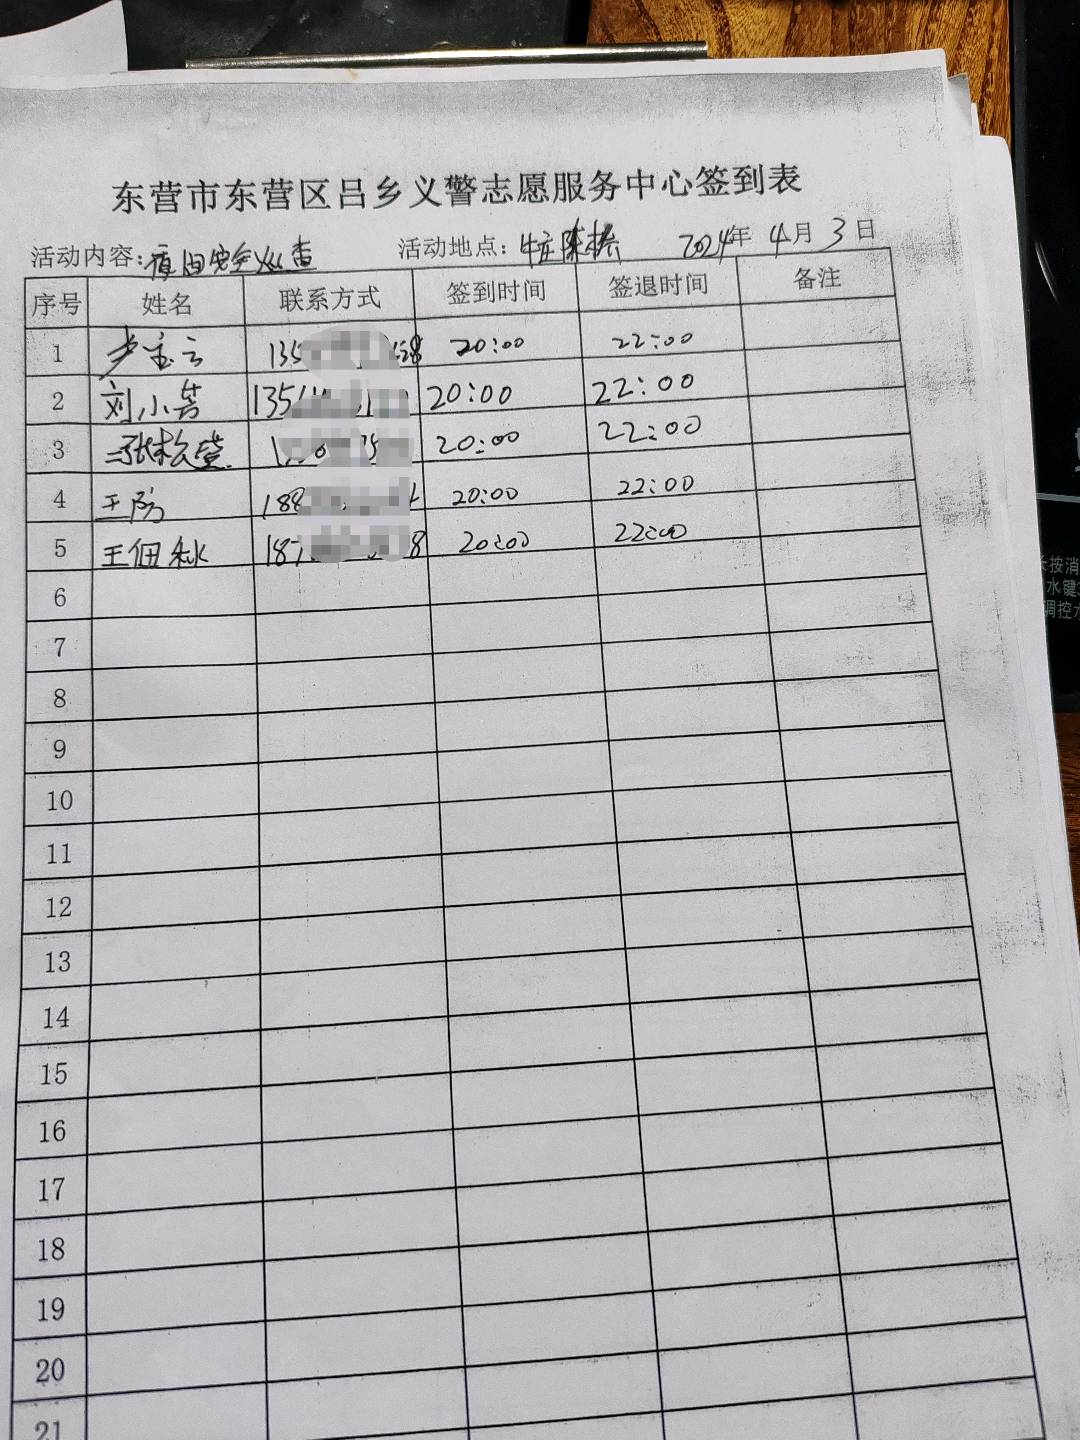 东营市东营区吕乡义警志愿服务中心签到表
活动内容:夜间安全巡查 活动地点: 2024年 4月 3日
序号 姓名 联系方式 签到时间 签退时间 备注
1 135 20:00 22:00
2 刘小芳 135 20:00 22:00
3 20:00 22:00
4 王 188 20:00 22:00
5 王佃秋 187 8 20:00 22:00
6
7
8
9
10
11
12
13
14
15
16
17
18
19
20
21
长按消
水键3
调控水